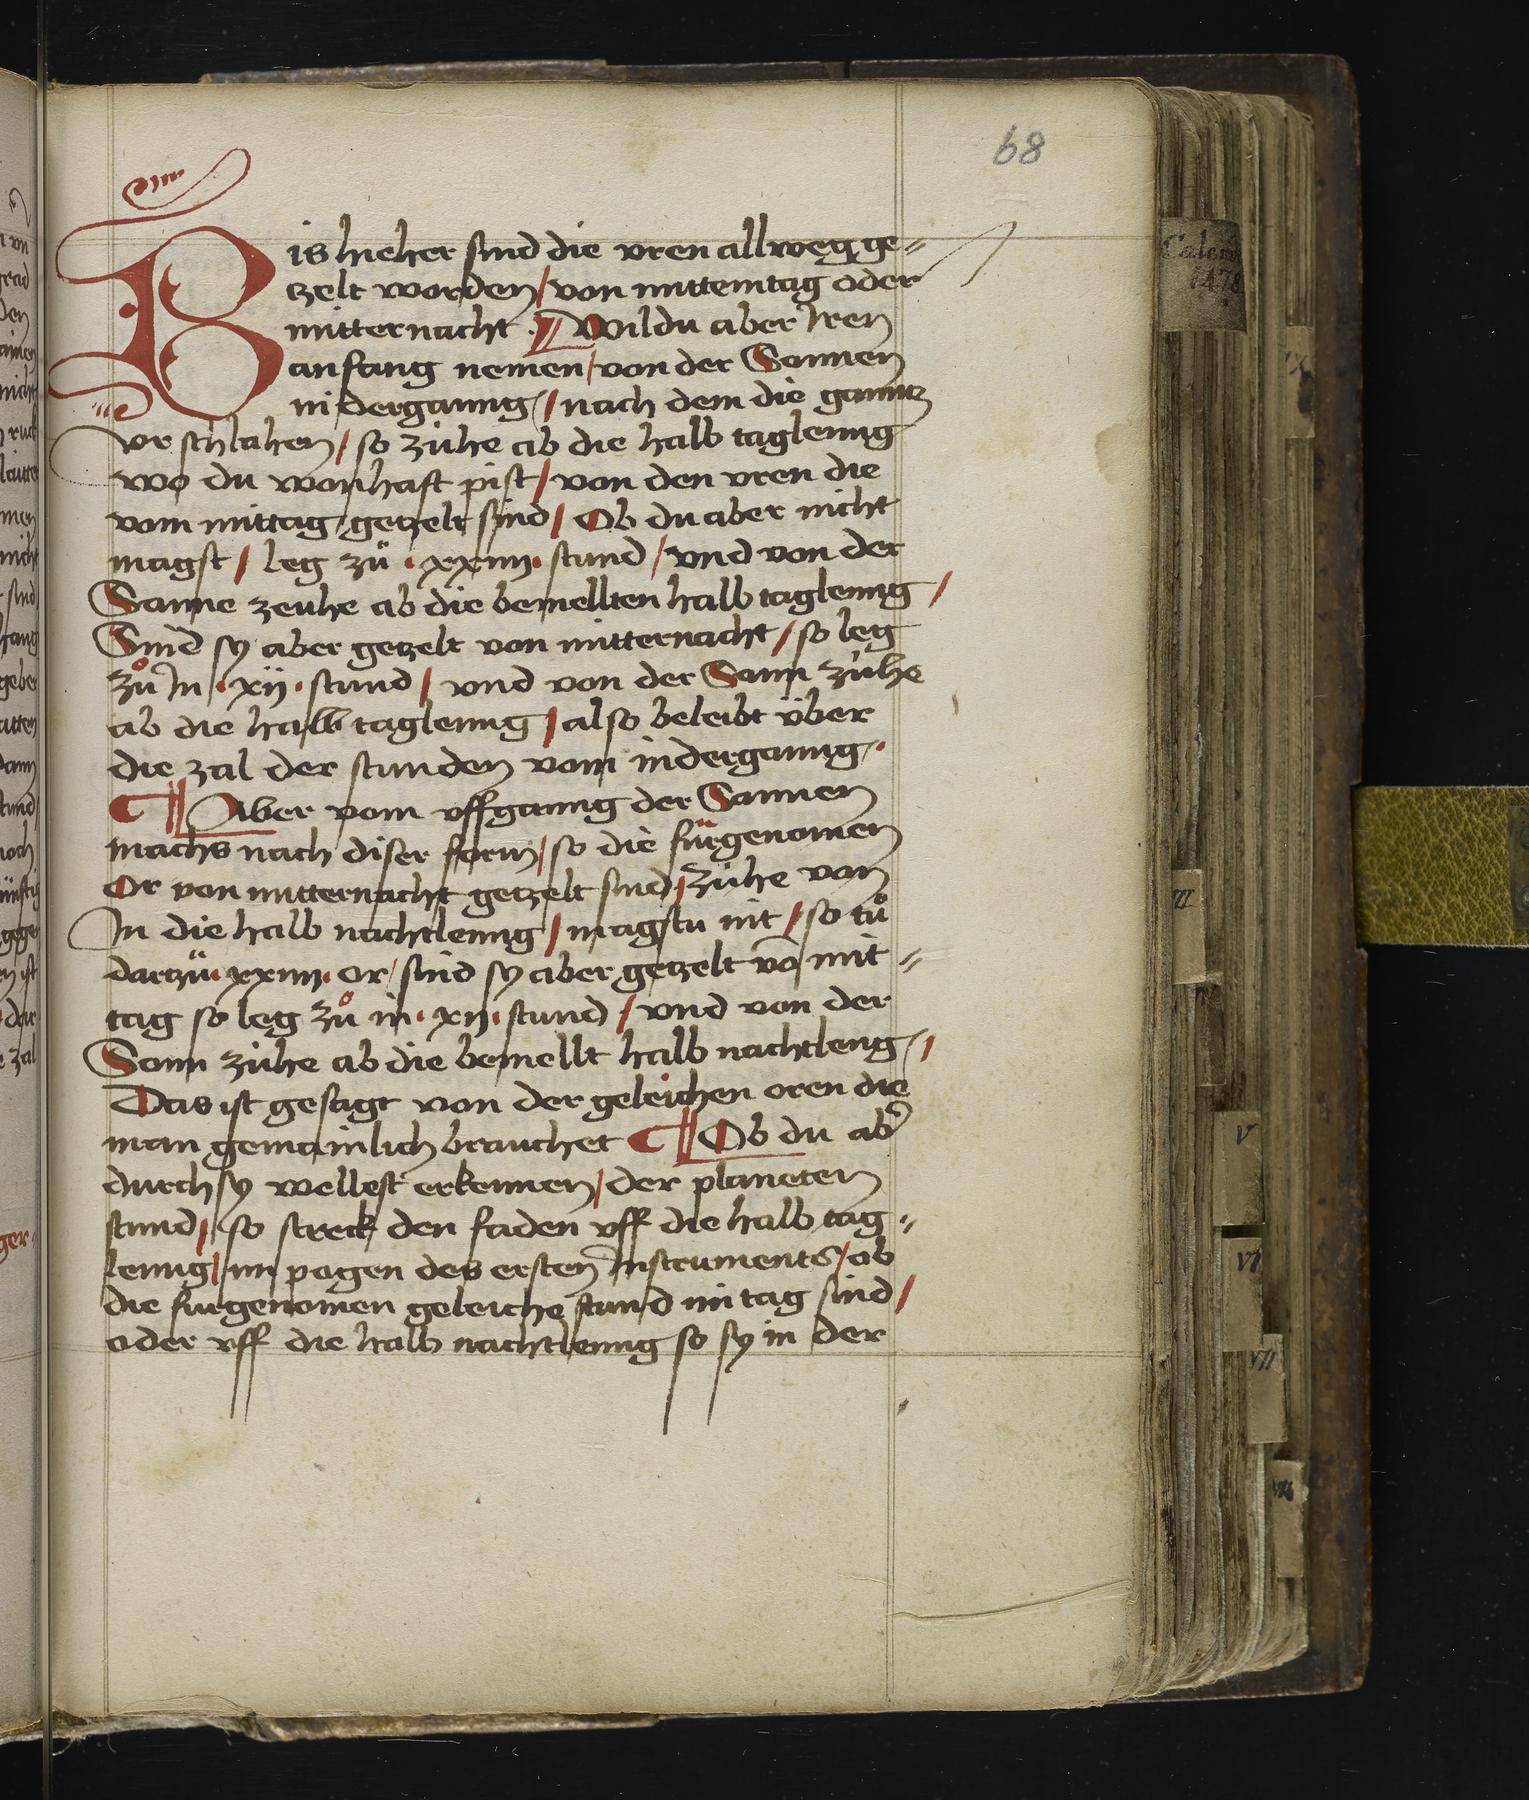 68
Bis hieher sind die vren allweg ge-
tzelt worden / von mittemtag oder
mitternacht . ¶ Wildu aber Iren
anfang nemen / von der Sonnen
nidergaunng / nach dem die gantz
vr schlahen / so zühe ab die halb tagleng
wo du wonhaft pist / von den vren die
vom mittag getzelt sind / Ob du aber nicht
magst / leg zů · xxiiij · stund / vnd von der
Samne zeuhe ab die bemellten halb tagleng /
Sind sy aber getzelt von mitternacht / so leg
zů In · xij · stund / vnd von der Som zühe
ab die halb tagleng / also beleibt über
die zal der stunden vom indergaung ·
¶ Aber vom vffganng der Sonnen
machs nach diser form / so die fürgenomen
Or von mitternacht getzelt sind / zühe von
In die halb nachtleng / magstu nit / so tů
dartzů · xxiiij · or / sind sy aber getzelt vō mit-
tag so leg zů in · xij · stund / vnd von der
Som zühe ab die bemellt halb nachtleng /
Das ist gesagt von der geleichen oren die
man gemainlich brauchet ¶ Ob du ab̛
durch sy wellest erkennen / der planeten
stund / so streck den faden vff die halb tag-
leng / im pogen des ersten Instruments / ob
die fürgenomen geleiche stund im tag sind /
oder vff die halb nachtleng so sy in der
Calend
1478
IX
III
V
VI
VII